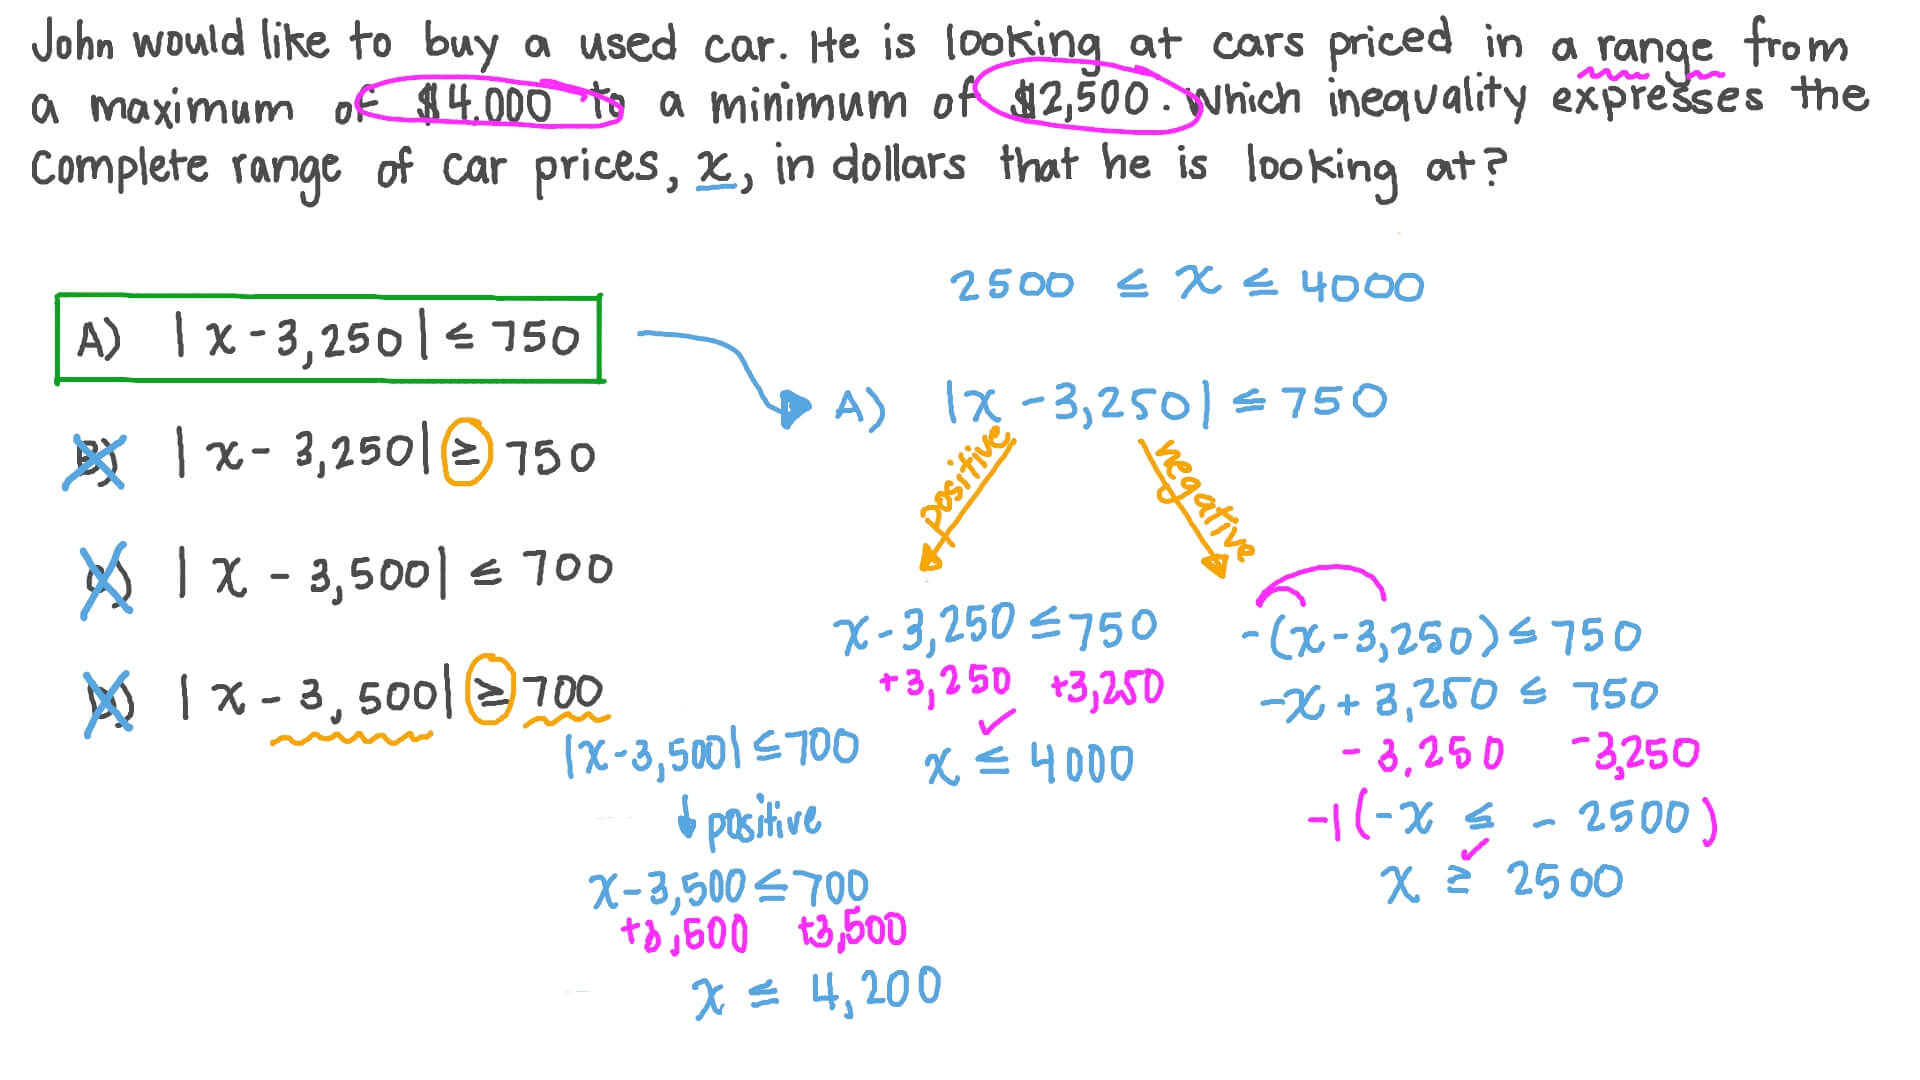 John would like to buy a used car. He is looking at cars priced in a range from
a maximum of $4.000 to a minimum of $2,500. Which inequality expresses the
Complete range of car prices, x, in dollars that he is looking at?
2500 ≤ x ≤ 4000
A) |x-3,250| ≤ 750
B) |x-3,250| ≥ 750
C) |x-3,500| ≤ 700
D) |x-3,500| ≥ 700
A) |x-3,250| ≤ 750
positive
negative
x-3,250 ≤ 750
+3,250 +3,250
x ≤ 4000
-(x-3,250) ≤ 750
-x+3,250 ≤ 750
-3,250 -3,250
-1(-x ≤ -2500)
x ≥ 2500
|x-3,500| ≤ 700
positive
x-3,500 ≤ 700
+3,500 +3,500
x ≤ 4,200